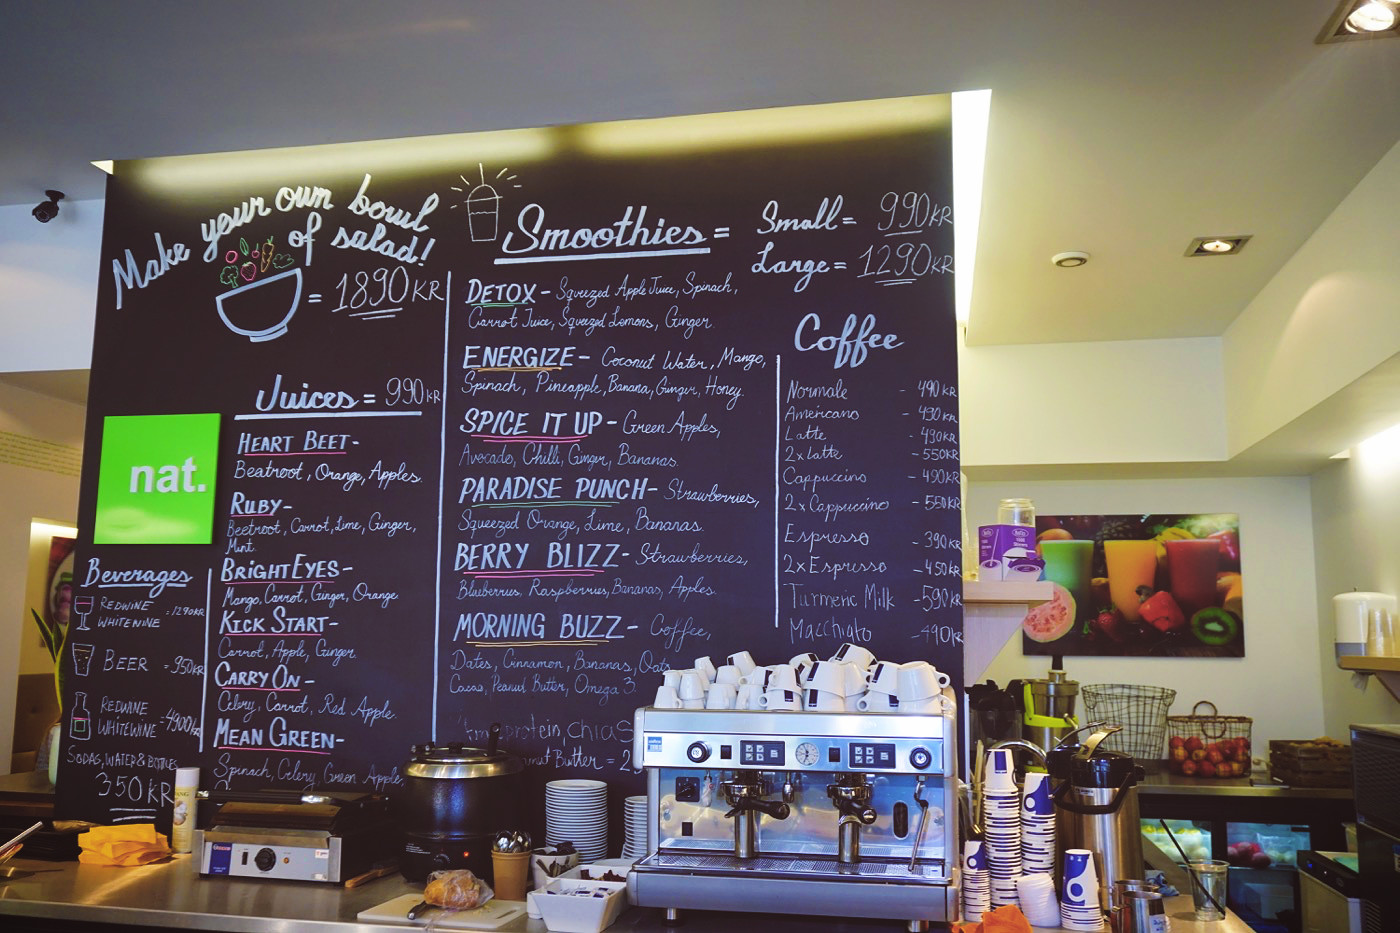 Make your own bowl
of salad!
= 1890 KR
Smoothies =
Small = 990 KR
Large = 1290 KR
DETOX - Squeezed Apple Juice, Spinach,
Carrot Juice, Squeezed Lemons, Ginger.
ENERGIZE - Coconut Water, Mango,
Spinach, Pineapple, Banana, Ginger, Honey.
SPICE IT UP - Green Apples,
Avocado, Chilli, Ginger, Bananas.
PARADISE PUNCH - Strawberries,
Squeezed Orange, Lime, Bananas.
BERRY BLIZZ - Strawberries,
Blueberries, Raspberries, Bananas, Apples.
MORNING BUZZ - Coffee,
Dates, Cinnamon, Bananas, Oats
Cacao, Peanut Butter, Omega 3.
protein, chias
Butter =
Coffee
Normale - 490 KR
Americano - 490 KR
Latte - 490 KR
2x Latte - 550 KR
Cappuccino - 490 KR
2x Cappuccino - 550 KR
Espresso - 390 KR
2x Espresso - 450 KR
Turmeric Milk - 590 KR
Macchiato - 490 KR
Juices = 990 KR
HEART BEET -
Beatroot, Orange, Apples.
RUBY -
Beetroot, Carrot, Lime, Ginger,
Mint.
BRIGHT EYES -
Mango, Carrot, Ginger, Orange
KICK START -
Carrot, Apple, Ginger
CARRY ON -
Celery, Carrot, Red Apple.
MEAN GREEN -
Spinach, Celery, Green Apple,
nat.
Beverages
REDWINE
WHITEWINE = 1290 KR
BEER = 950 KR
REDWINE
WHITEWINE = 4900 KR
SODAS, WATER & BOTTLES
350 KR